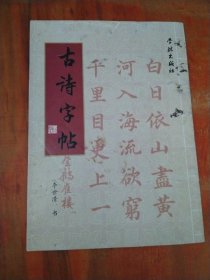 学林出版社
白日依山盡黄
河入海流欲窮
千里目更上一
登鹳雀楼
古诗字帖
书